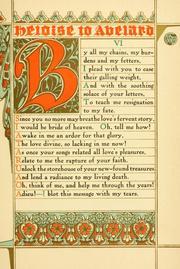 Heloise to Abelard
VI
By all my chains, my bur-
dens and my fetters,
I plead with you to ease
their galling weight,
And with the soothing
solace of your letters,
To teach me resignation
to my fate.
Since you no more may breathe love's fervent story,
I would be bride of heaven. Oh, tell me how!
Awake in me an ardor for that glory,
The love divine, so lacking in me now!
As once your songs related all love's pleasures,
Relate to me the rapture of your faith.
Unlock the storehouse of your new-found treasures,
And lend a radiance to my living death.
Oh, think of me, and help me through the years!
Adieu!—I blot this message with my tears.